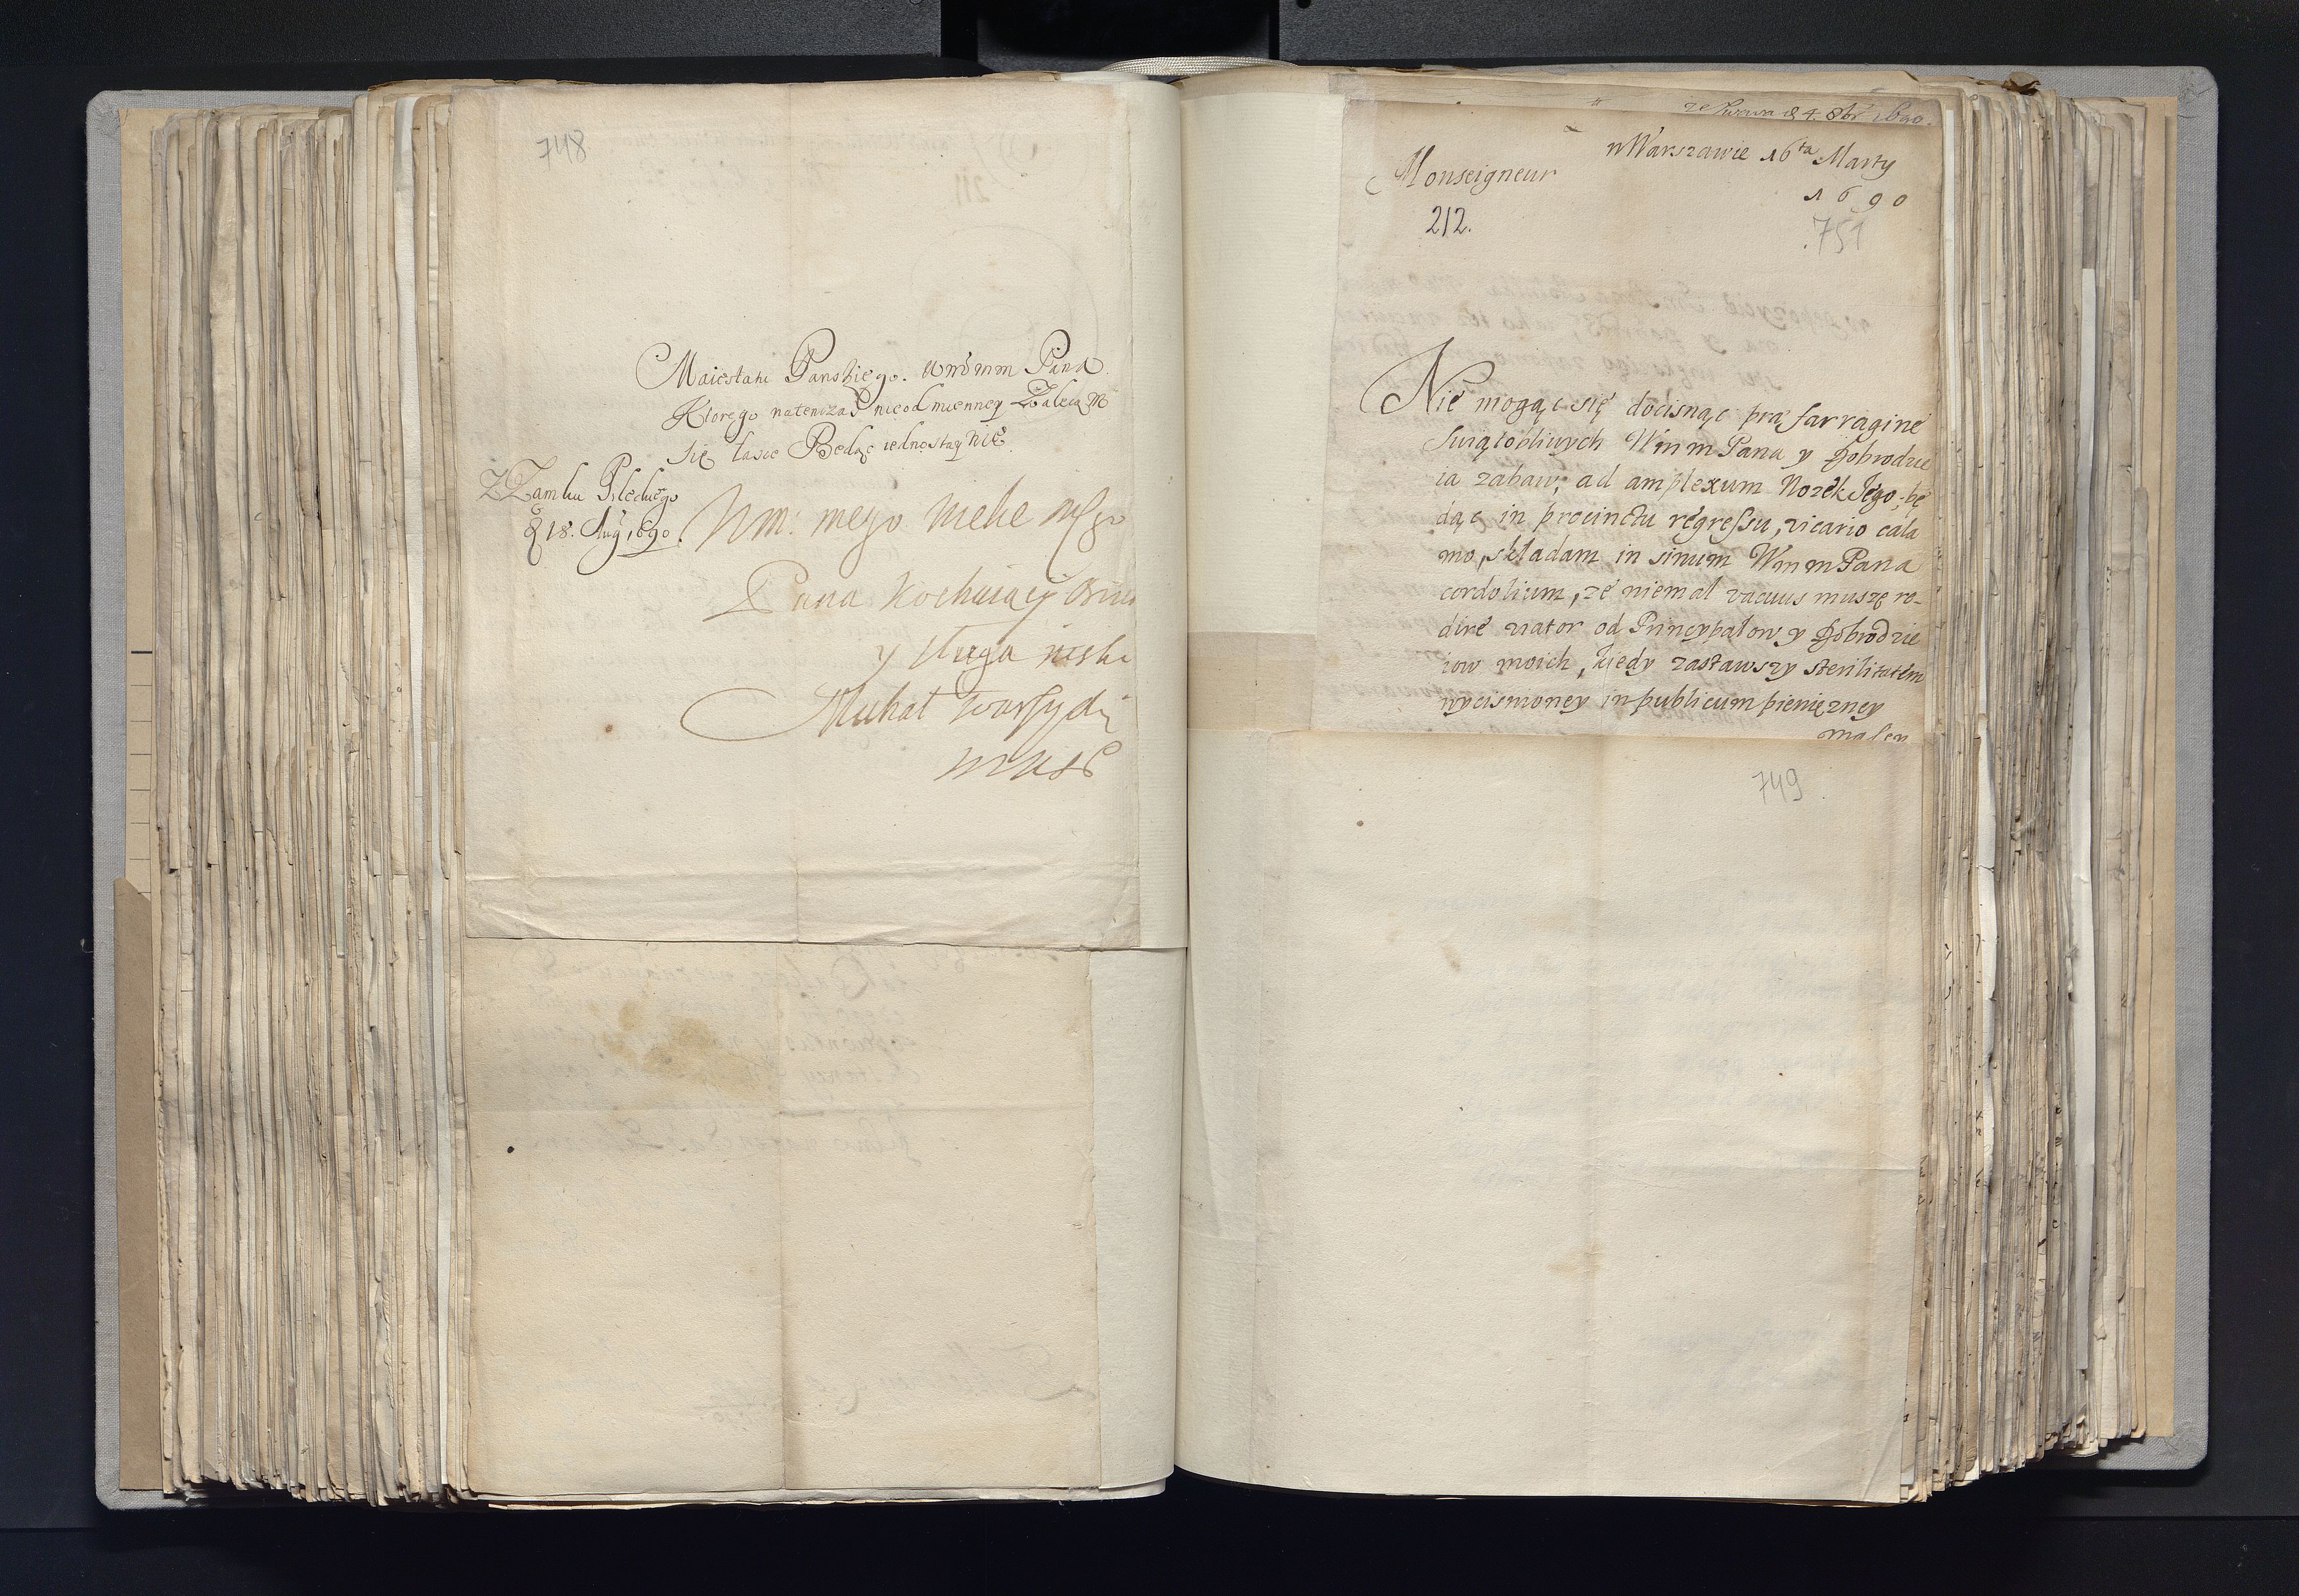 748
Maiestatu Panskiego. Wmmm Pana.
Ktorego natenczas nieodmienney Zalecam
się łasce Będąc iednostaynie.
Z Zamku
18. Aug 1690.
Wm: mego
Pana
y sługa
Michał
212.
ze Lwowa d 4. 8br 1690.
w Warszawie 16ta Marty
Monseigneur
1690
751
Nie mogąc się docisnąc præ farragine
swiątobliwych Wmm Pana y Dobrodzie
ia zabaw, ad amplexum Nozek Jego, bę
dąc in procinctu regressu, vicario cala
mo, składam in sinum Wmm Pana
cordolium, ze niemal vacuus muszę re-
dire viator od Pryncypałow y Dobrodzie
iow moich, kiedy zastawszy sterilitatem
wycisnioney in publicum pieniężney
749